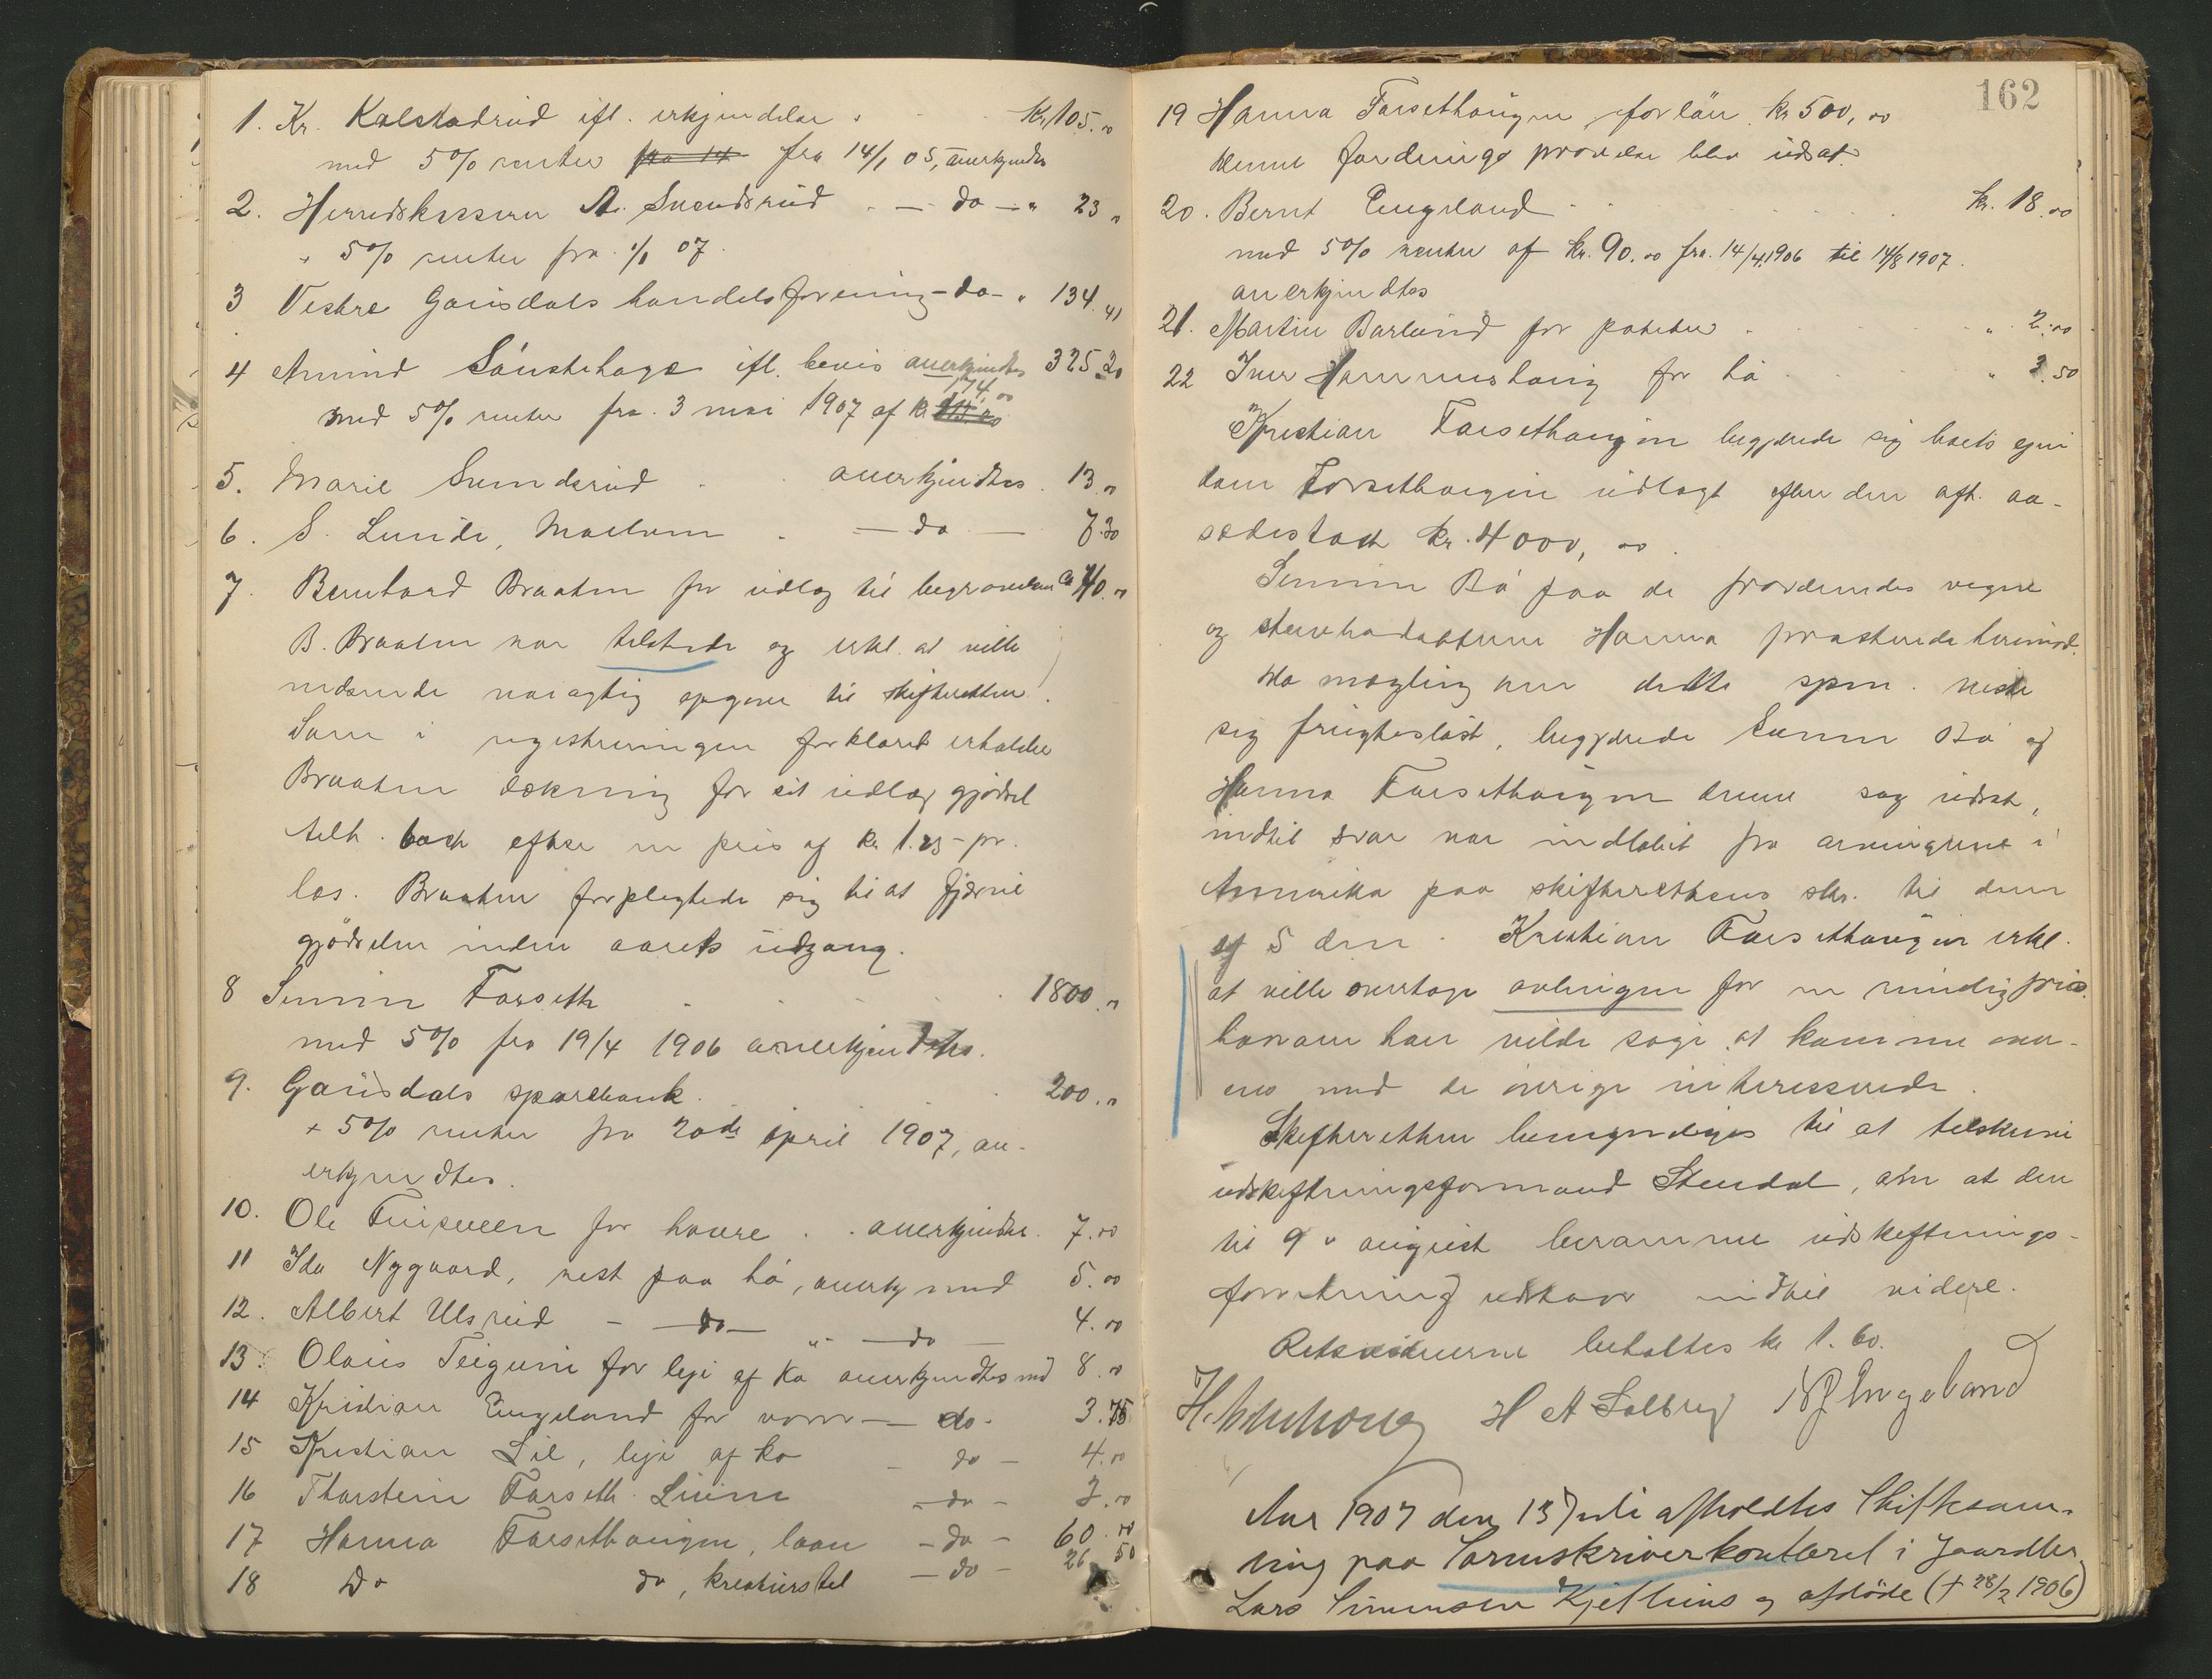 1. Kr. Kalstadrud ifl. erkjendelse . Kr. 105.00
med 5% renter fra 14 fra 14/1 05, anerkjendtes
2. Herredskasserer A. Svendsrud - do - " 23 "
" 5% renter fra 1/1 07.
3 Vestre Gausdals handelsforening - do - " 134.41
4 Amund Sønstehage ifl. bevis anerkjendtes 325.20
med 5% renter fra 3 mai 1907 af kr 174.00
5. Marie Svendsrud . anerkjendtes . 13.00
6. S. Lunde, - do - 7.30
7. Bernhard Braaten for udlæg til begravelsen Ca 40.00
B. Braaten var tilstede og erkl. at ville
indsende nøiagtig opgave til skifteretten.
Som i registreringen forklaret erholder
Braaten dækning for sit udlæg gjødsel
tilh. boet efter en pris af kr 1.25 - pr.
læs. Braaten forpligtede sig til at fjerne
gjødselen inden aarets udgang.
8 Simen Forseth 1800.00
med 5% fra 19/4 1906 anerkjendtes.
9. Gausdals sparebank. 200.00
+ 5% renter fra 20de april 1907, an-
erkjendtes.
10. Ole for havre . . anerkjendtes. 7.00
11 Ida Nygaard, rest paa hø, anerkj med 5.00
12. Albert Ulsrud - do - " - do - 4.00
13. Olaus Teigum for leje af ko anerkjendtes med 8.00
14 Kristian Engeland for varer - do - 3.75
15 Kristian Lie, leje af ko - do - 4.00
16 Thorstein Forseth Lien - do - 2.00
17 Hanna Forsethaugen, laan - do - 60.00
18 Do do, kreaturstel - do - 26 50
162
19 Hanna Forsethaugen for lån kr 500,00
denne fordrings prøvelse blev udsat.
20. Bernt Engeland kr. 18.00
med 5% renter af kr. 90.00 fra 14/4 1906 til 14/8 1907.
anerkjendtes
21. Martin Barlund for poteter . " 2.00
22 Iver Hammershaug for hø " 3.50
Kristian Forsethaugen begjærede sig boets ejen
dom Forsethaugen udlagt efter den afh. aa-
sædestaxt kr. 4000,00.
Simen Bø paa de fraværendes vegne
og stervbodatteren Hanna protesterede herimod.
Da mægling om dette spm. viste
sig frugtesløst, begjærede Simen Bø og
Hanna Forsethaugen denne sag udsat,
indtil svar var indløbet fra arvingerne i
Amerika paa skifterettens skr. til dem
af 5 dens. Kristian Forsethaugen erkl.
at ville overtage avlingen for en rimelig pris.
hvorom han vilde søge at komme over-
ens med de øvrige interesserede.
Skifteretten bemyndiges til at tilskrive
udskiftningsformand Stendal, om at den
til 9de august berammede udskiftnings-
forretning udstaar indtil videre.
Retsvidnerne betaltes kr 1.60.
H A Solberg N J Engeland
Aar 1907 den 13 Juli afholdtes Skiftesam-
ling paa Sorenskriverkontoret i Gaardbr.
Lars Simensen Kjetlins og afdøde († 28/2 1906)